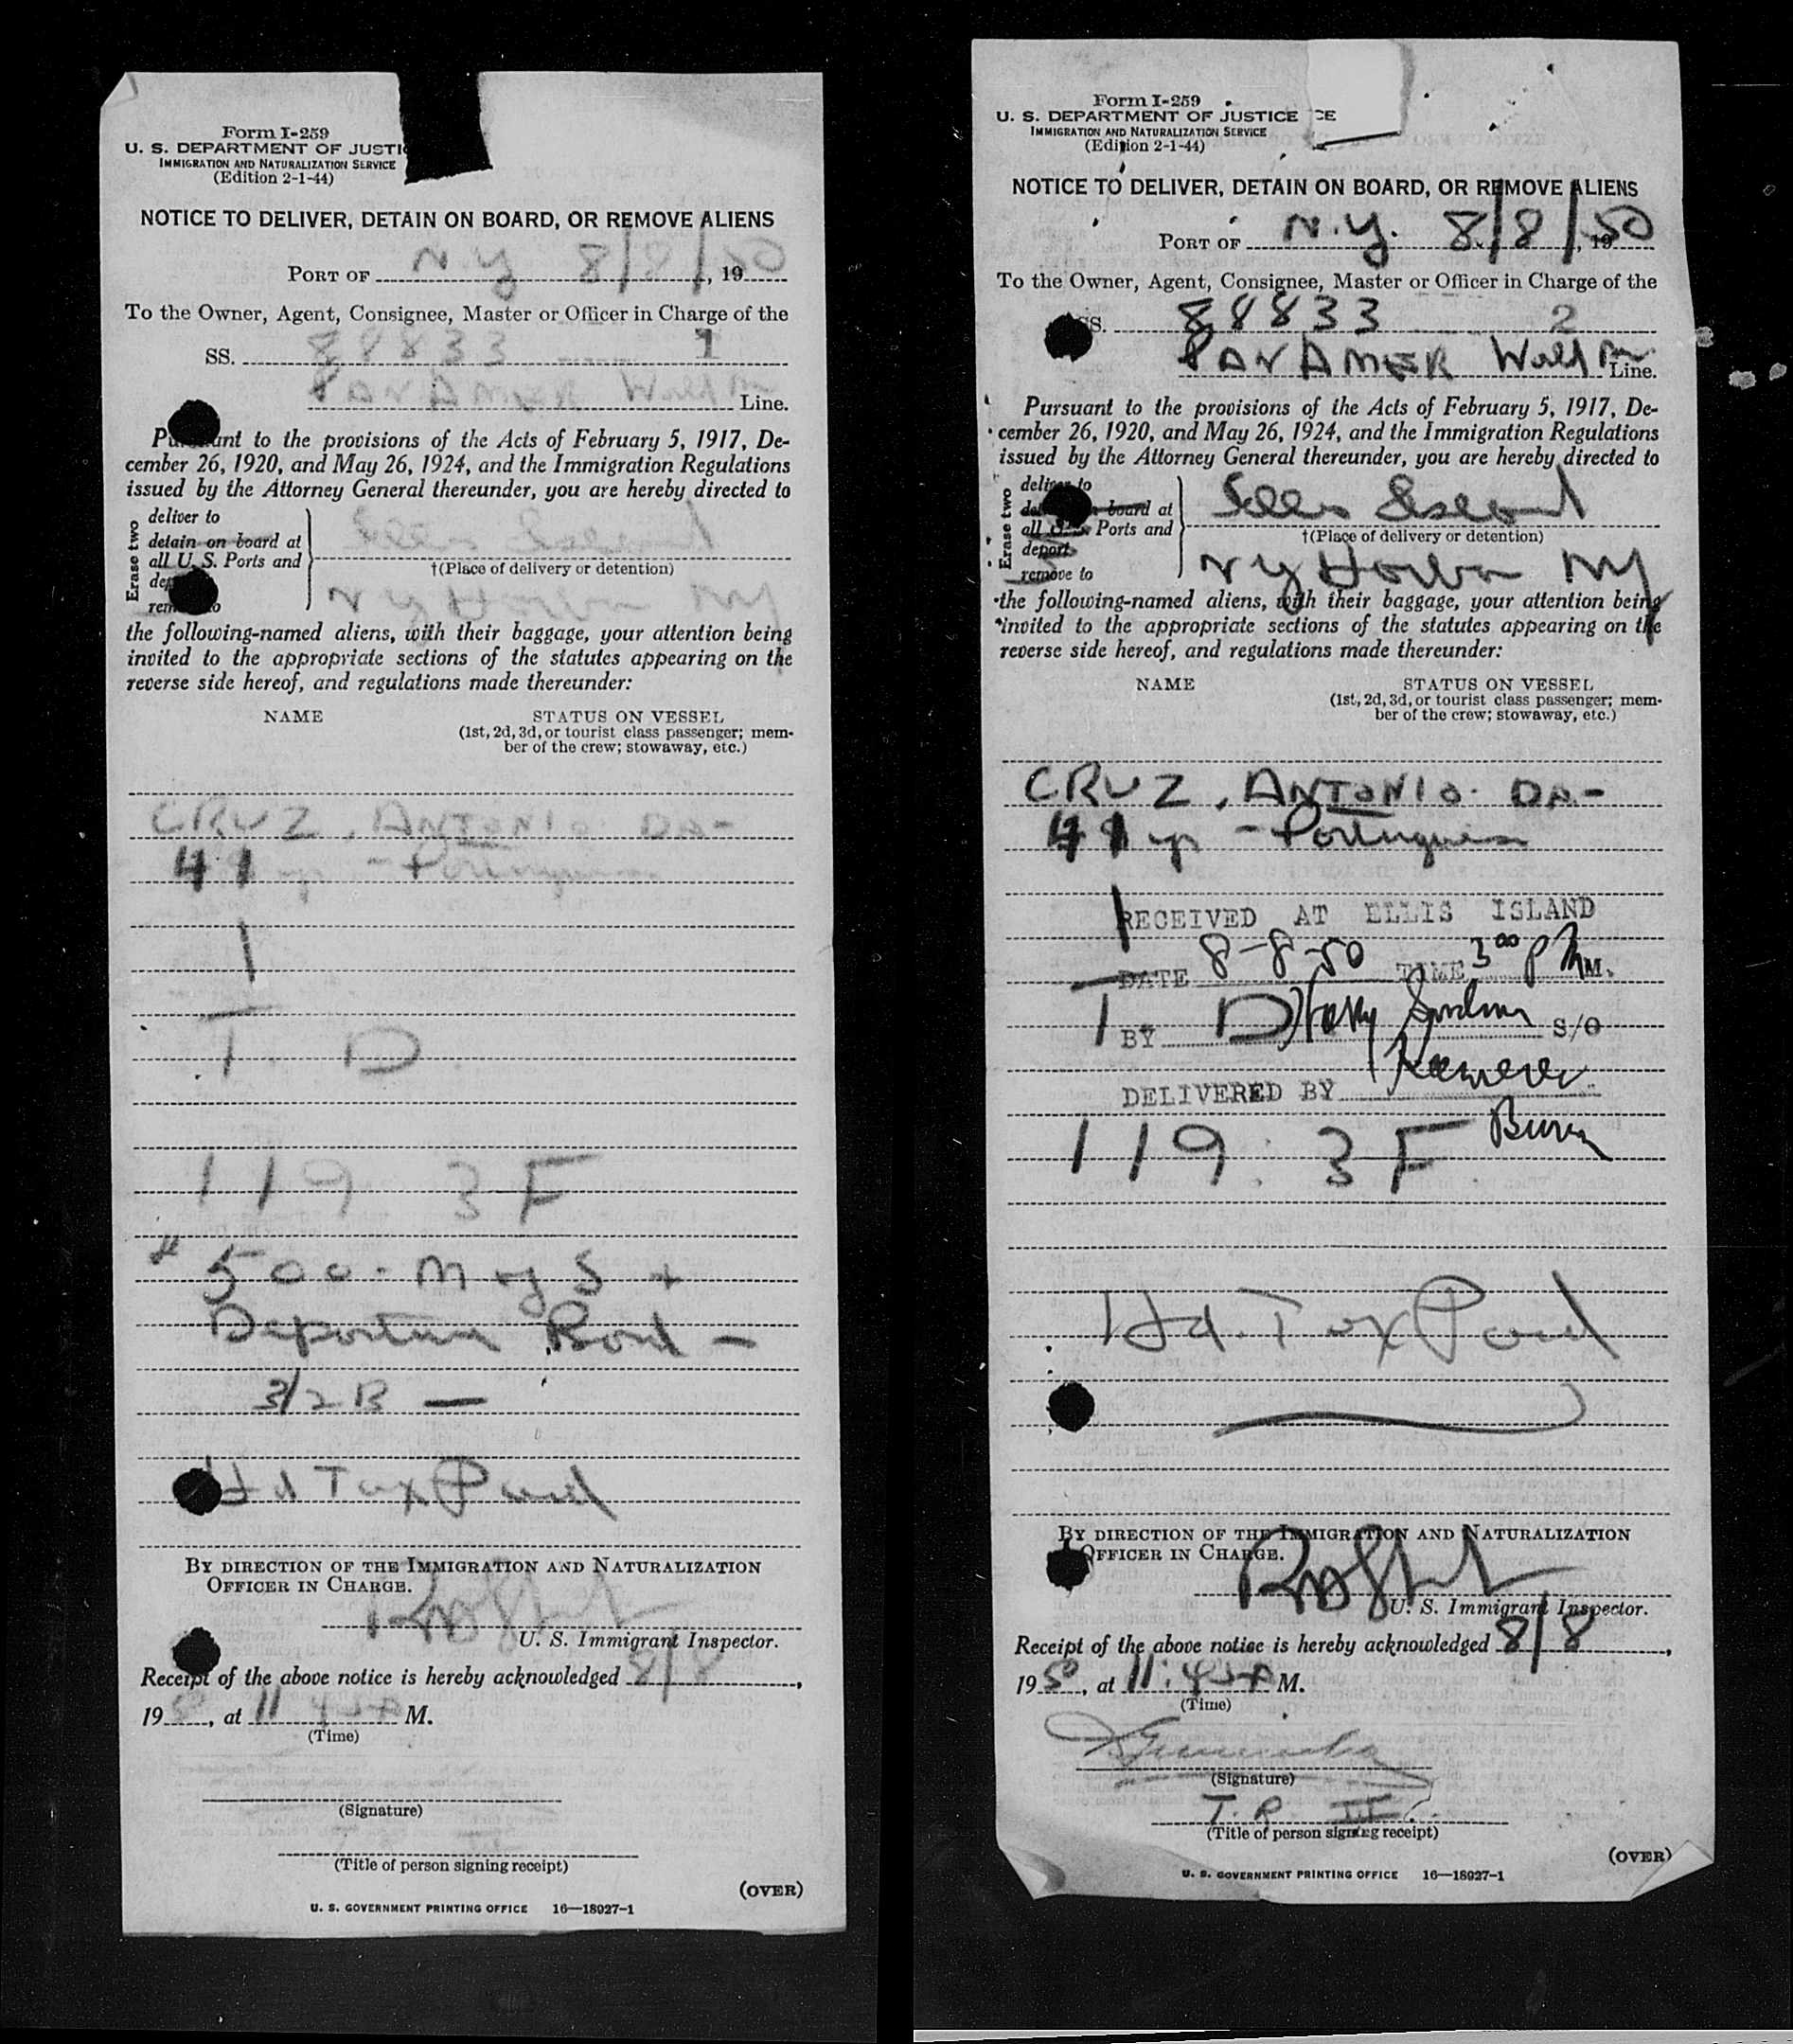 Form I-259
U. S. DEPARTMENT OF JUSTI
IMMIGRATION AND NATURALIZATION SERVICE
(Edition 2-1-44)
NOTICE TO DELIVER, DETAIN ON BOARD, OR REMOVE ALIENS
PORT OF N.Y 8/8/50, 19
To the Owner, Agent, Consignee, Master or Officer in Charge of the
SS. 88833 1
PAN AMER World
Line.
Pursuant to the provisions of the Acts of February 5, 1917, De-
cember 26, 1920, and May 26, 1924, and the Immigration Regulations
issued by the Attorney General thereunder, you are hereby directed to
Erase two
deliver to
detain on board at
all U. S. Ports and
dep
remove to
Ellis Island
†(Place of delivery or detention)
NY Harbor NY
the following-named aliens, with their baggage, your attention being
invited to the appropriate sections of the statutes appearing on the
reverse side hereof, and regulations made thereunder:
NAME STATUS ON VESSEL
(1st, 2d, 3d, or tourist class passenger; mem-
ber of the crew; stowaway, etc.)
CRUZ, ANTONIO DA-
41 yr - Portuguese
1
T. D
119 3F
$ 500. M y S +
Departure Bond -
3/2 B —
Hd Tax Paid
BY DIRECTION OF THE IMMIGRATION AND NATURALIZATION
OFFICER IN CHARGE.
U. S. Immigrant Inspector.
Receipt of the above notice is hereby acknowledged 8/8,
19 5, at 11 45 A M.
(Time)
(Signature)
(Title of person signing receipt)
(OVER)
U. S. GOVERNMENT PRINTING OFFICE 16—18927-1
Form I-259
U. S. DEPARTMENT OF JUSTICE CE
IMMIGRATION AND NATURALIZATION SERVICE
(Edition 2-1-44)
NOTICE TO DELIVER, DETAIN ON BOARD, OR REMOVE ALIENS
PORT OF N.Y. 8/8/50, 19
To the Owner, Agent, Consignee, Master or Officer in Charge of the
SS. 88833 2
PAN AMER World
Line.
Pursuant to the provisions of the Acts of February 5, 1917, De-
cember 26, 1920, and May 26, 1924, and the Immigration Regulations
issued by the Attorney General thereunder, you are hereby directed to
Erase two
deliver to
detain on board at
all U. S. Ports and
deport
remove to
Ellis Island
†(Place of delivery or detention)
NY Harbor NY
the following-named aliens, with their baggage, your attention being
invited to the appropriate sections of the statutes appearing on the
reverse side hereof, and regulations made thereunder:
NAME STATUS ON VESSEL
(1st, 2d, 3d, or tourist class passenger; mem-
ber of the crew; stowaway, etc.)
CRUZ, ANTONIO. DA-
41 yr - Portuguese
1
RECEIVED AT ELLIS ISLAND
DATE 8-8-50 TIME 3 00 P M.
T D
BY S/O
DELIVERED BY
119. 3F
Hd. Tax Paid
BY DIRECTION OF THE IMMIGRATION AND NATURALIZATION
OFFICER IN CHARGE.
U. S. Immigrant Inspector.
Receipt of the above notice is hereby acknowledged 8/8,
19 5, at 11:45 A M.
(Time)
(Signature)
T. R.
(Title of person signing receipt)
(OVER)
U. S. GOVERNMENT PRINTING OFFICE 16—18927-1